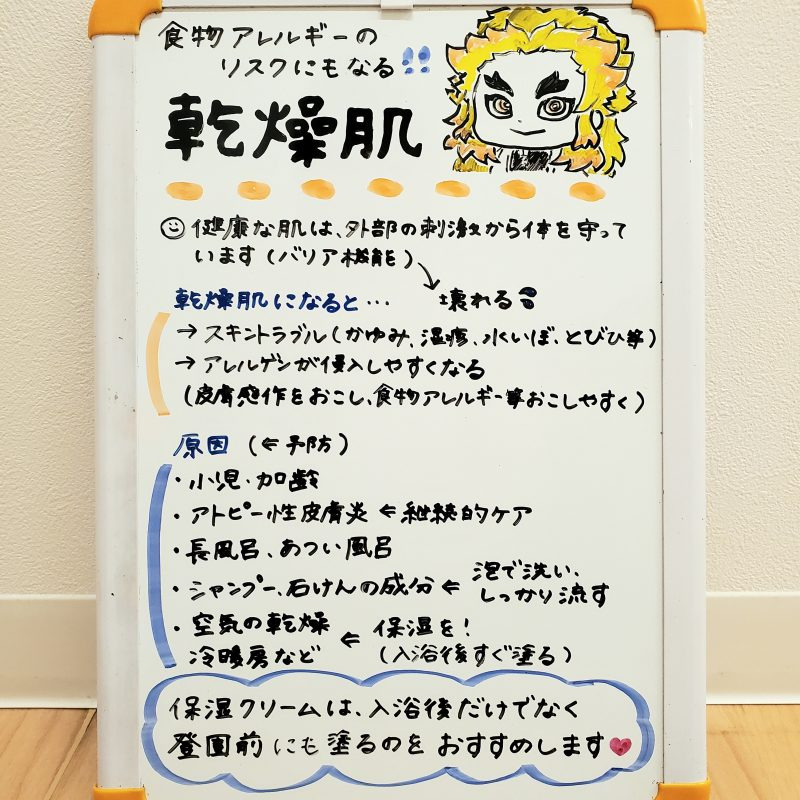 食物アレルギーの
リスクにもなる!!
乾燥肌
健康な肌は、外部の刺激から体を守って
います(バリア機能)
壊れる
乾燥肌になると…
→スキントラブル(かゆみ、湿疹、水いぼ、とびひ等)
→アレルゲンが侵入しやすくなる
(皮膚感作をおこし、食物アレルギー等おこしやすく)
原因(⇐予防)
・小児・加齢
・アトピー性皮膚炎⇐継続的ケア
・長風呂、あつい風呂
・シャンプー、石けんの成分⇐泡で洗い、
しっかり流す
・空気の乾燥
冷暖房など⇐保湿を!
(入浴後すぐ塗る)
保湿クリームは、入浴後だけでなく
登園前にも塗るのをおすすめします